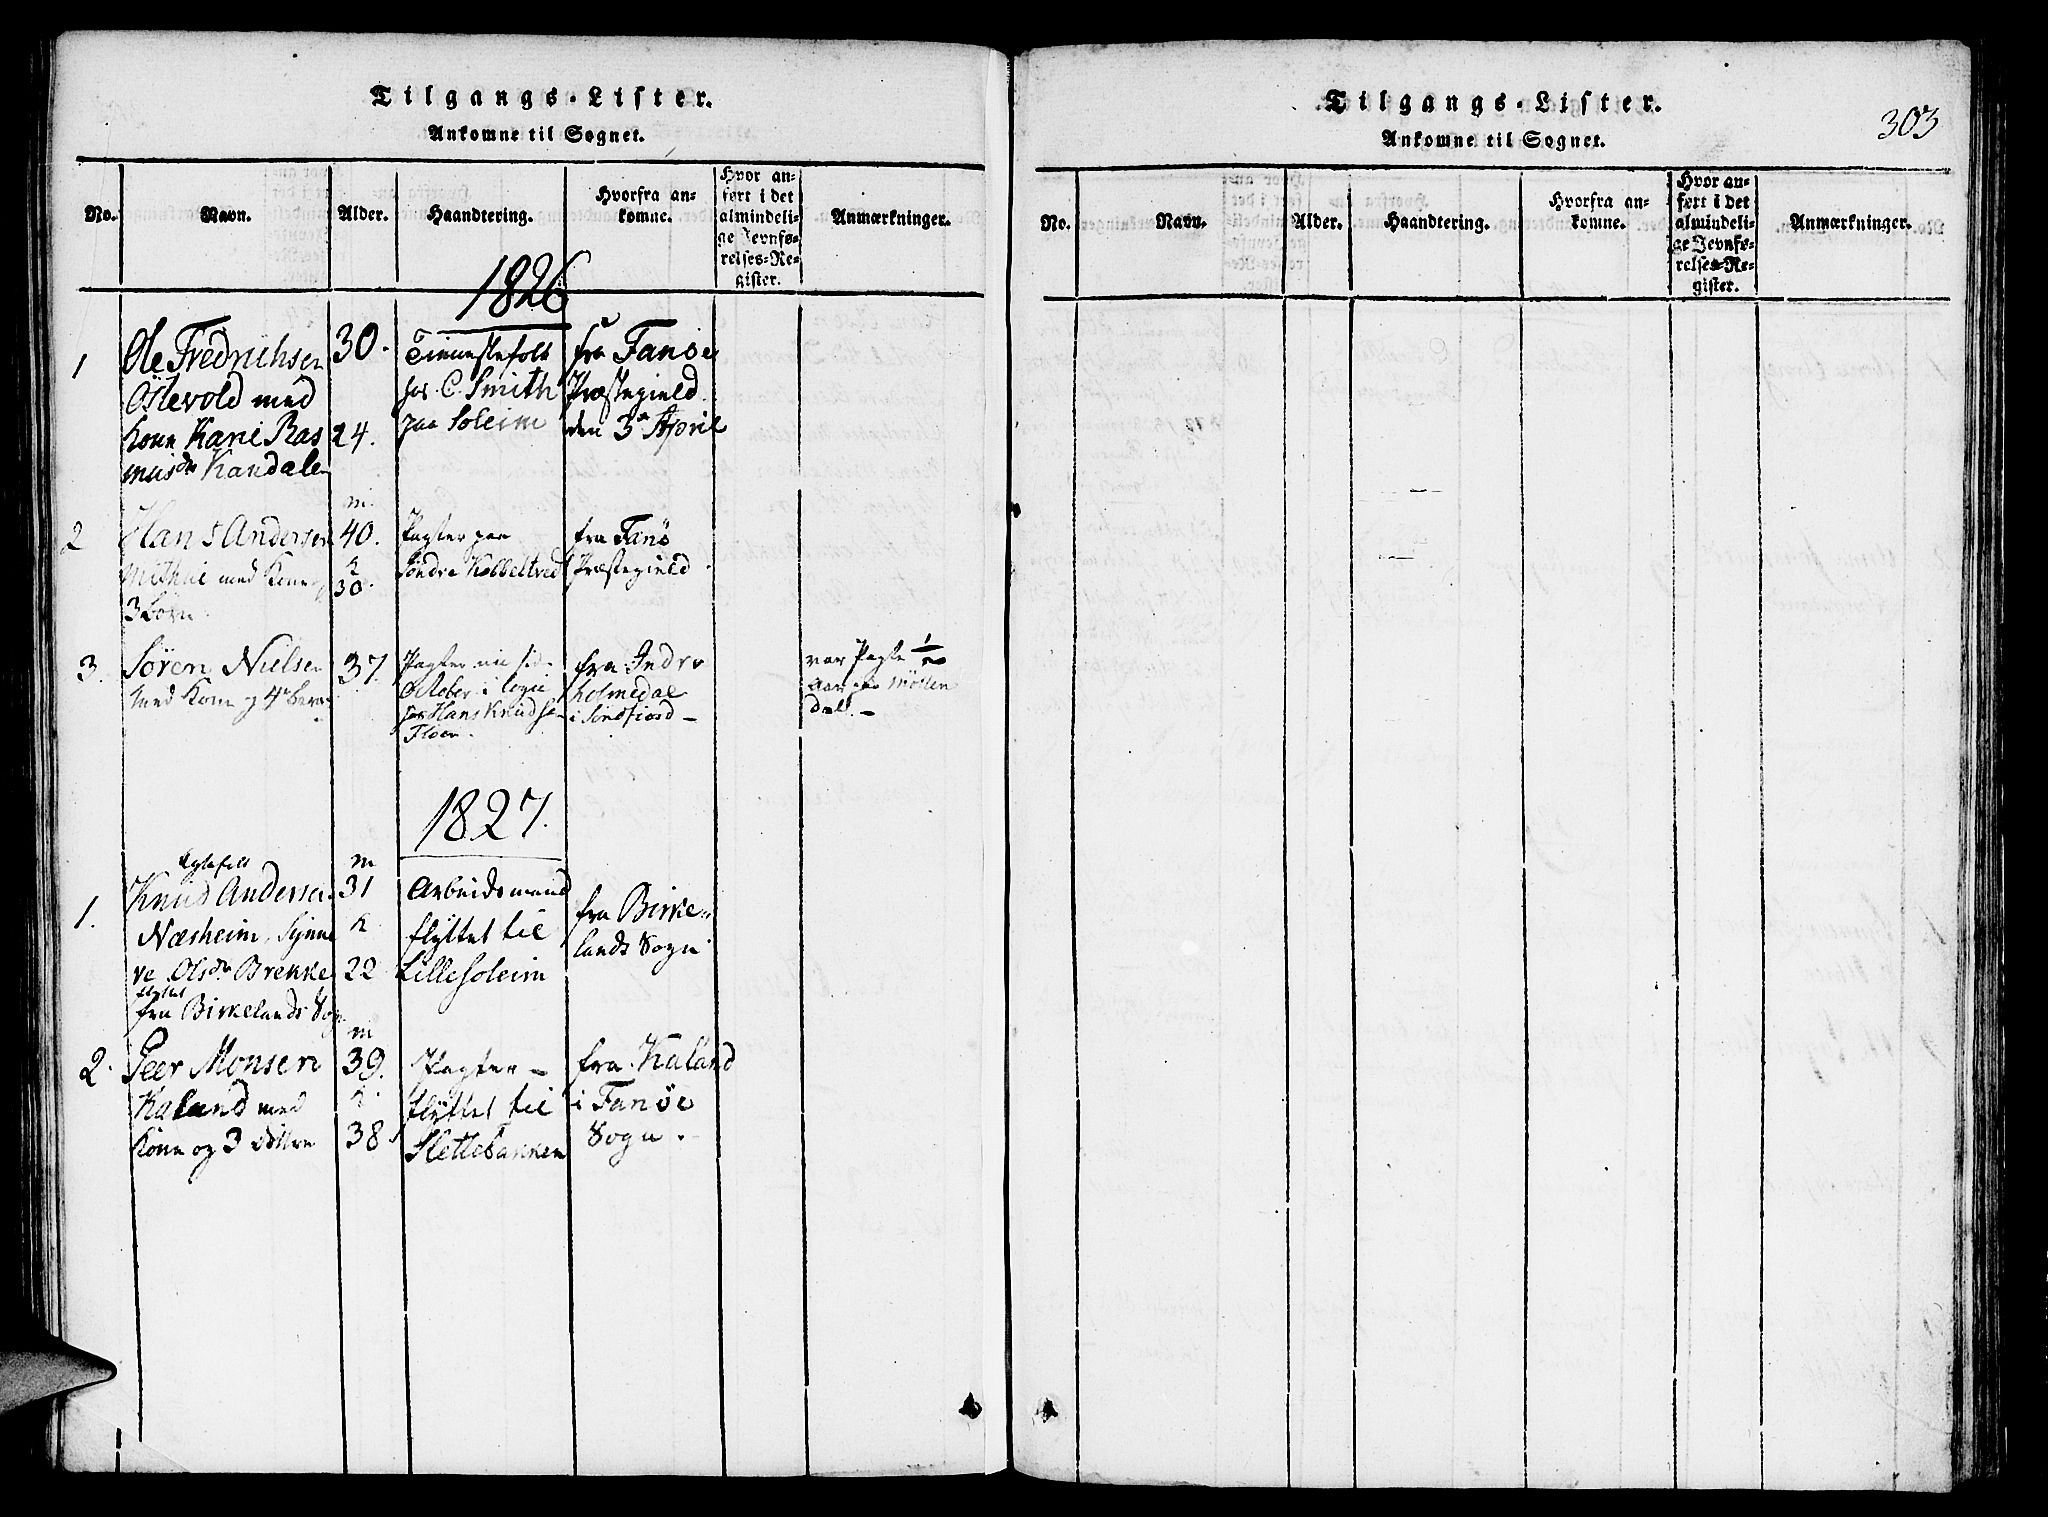 Tilgangs-Lister.
Ankomne til Sognet.
No.
Navn.
Alder.
Haandtering.
Hvorfra an-
komne.
Hvor an-
ført i det
almindeli-
ge Jevnfø-
relses-Re-
gister.
Anmærkninger.
1826
1
Ole Fredrichsen
Östevold med
kone Kari Ras
musdr Kandalen
30.
24.
Tienestefolk
hos C. Smith
paa Soleim
fra Fanøe
Præstegield
den 3e April
2
Hans Andersen
med Kone og
3 børn.
m.
40.
k
30.
Pagter paa
Søndre Kobbeltved
fra Fanø
Præstegield.
3.
Søren Nielsen
med Kone og 4re børn
37.
Pagter
October i logie
hos Hans Knudsen
Floen.
fra Indre
holmedal
i Søndfiord -
var Pagte 1/2
Aar paa Möllen
dal. -
1827.
1.
Egtefolk
Knud Andersen
Næsheim, Synne
ve Olsdr Brekke
flyttet
fra Birkelands Sogn
m
31
k
22
Arbeidsmand
flyttet til
Lillesoleim
fra Birke-
lands Sogn
2.
Peer Monsen
Kaland med
Kone og 3 döttre
m
39.
k.
38
Pagter -
flyttet til
Slettebakken
fra Kaland
i Fanøe
Sogn.
Tilgangs-Lister.
Ankomne til Sognet.
303
No.
Navn.
Alder.
Haandtering.
Hvorfra an-
komne.
Hvor an-
ført i det
almindeli-
ge Jevnfø-
relses-Re-
gister.
Anmærkninger.